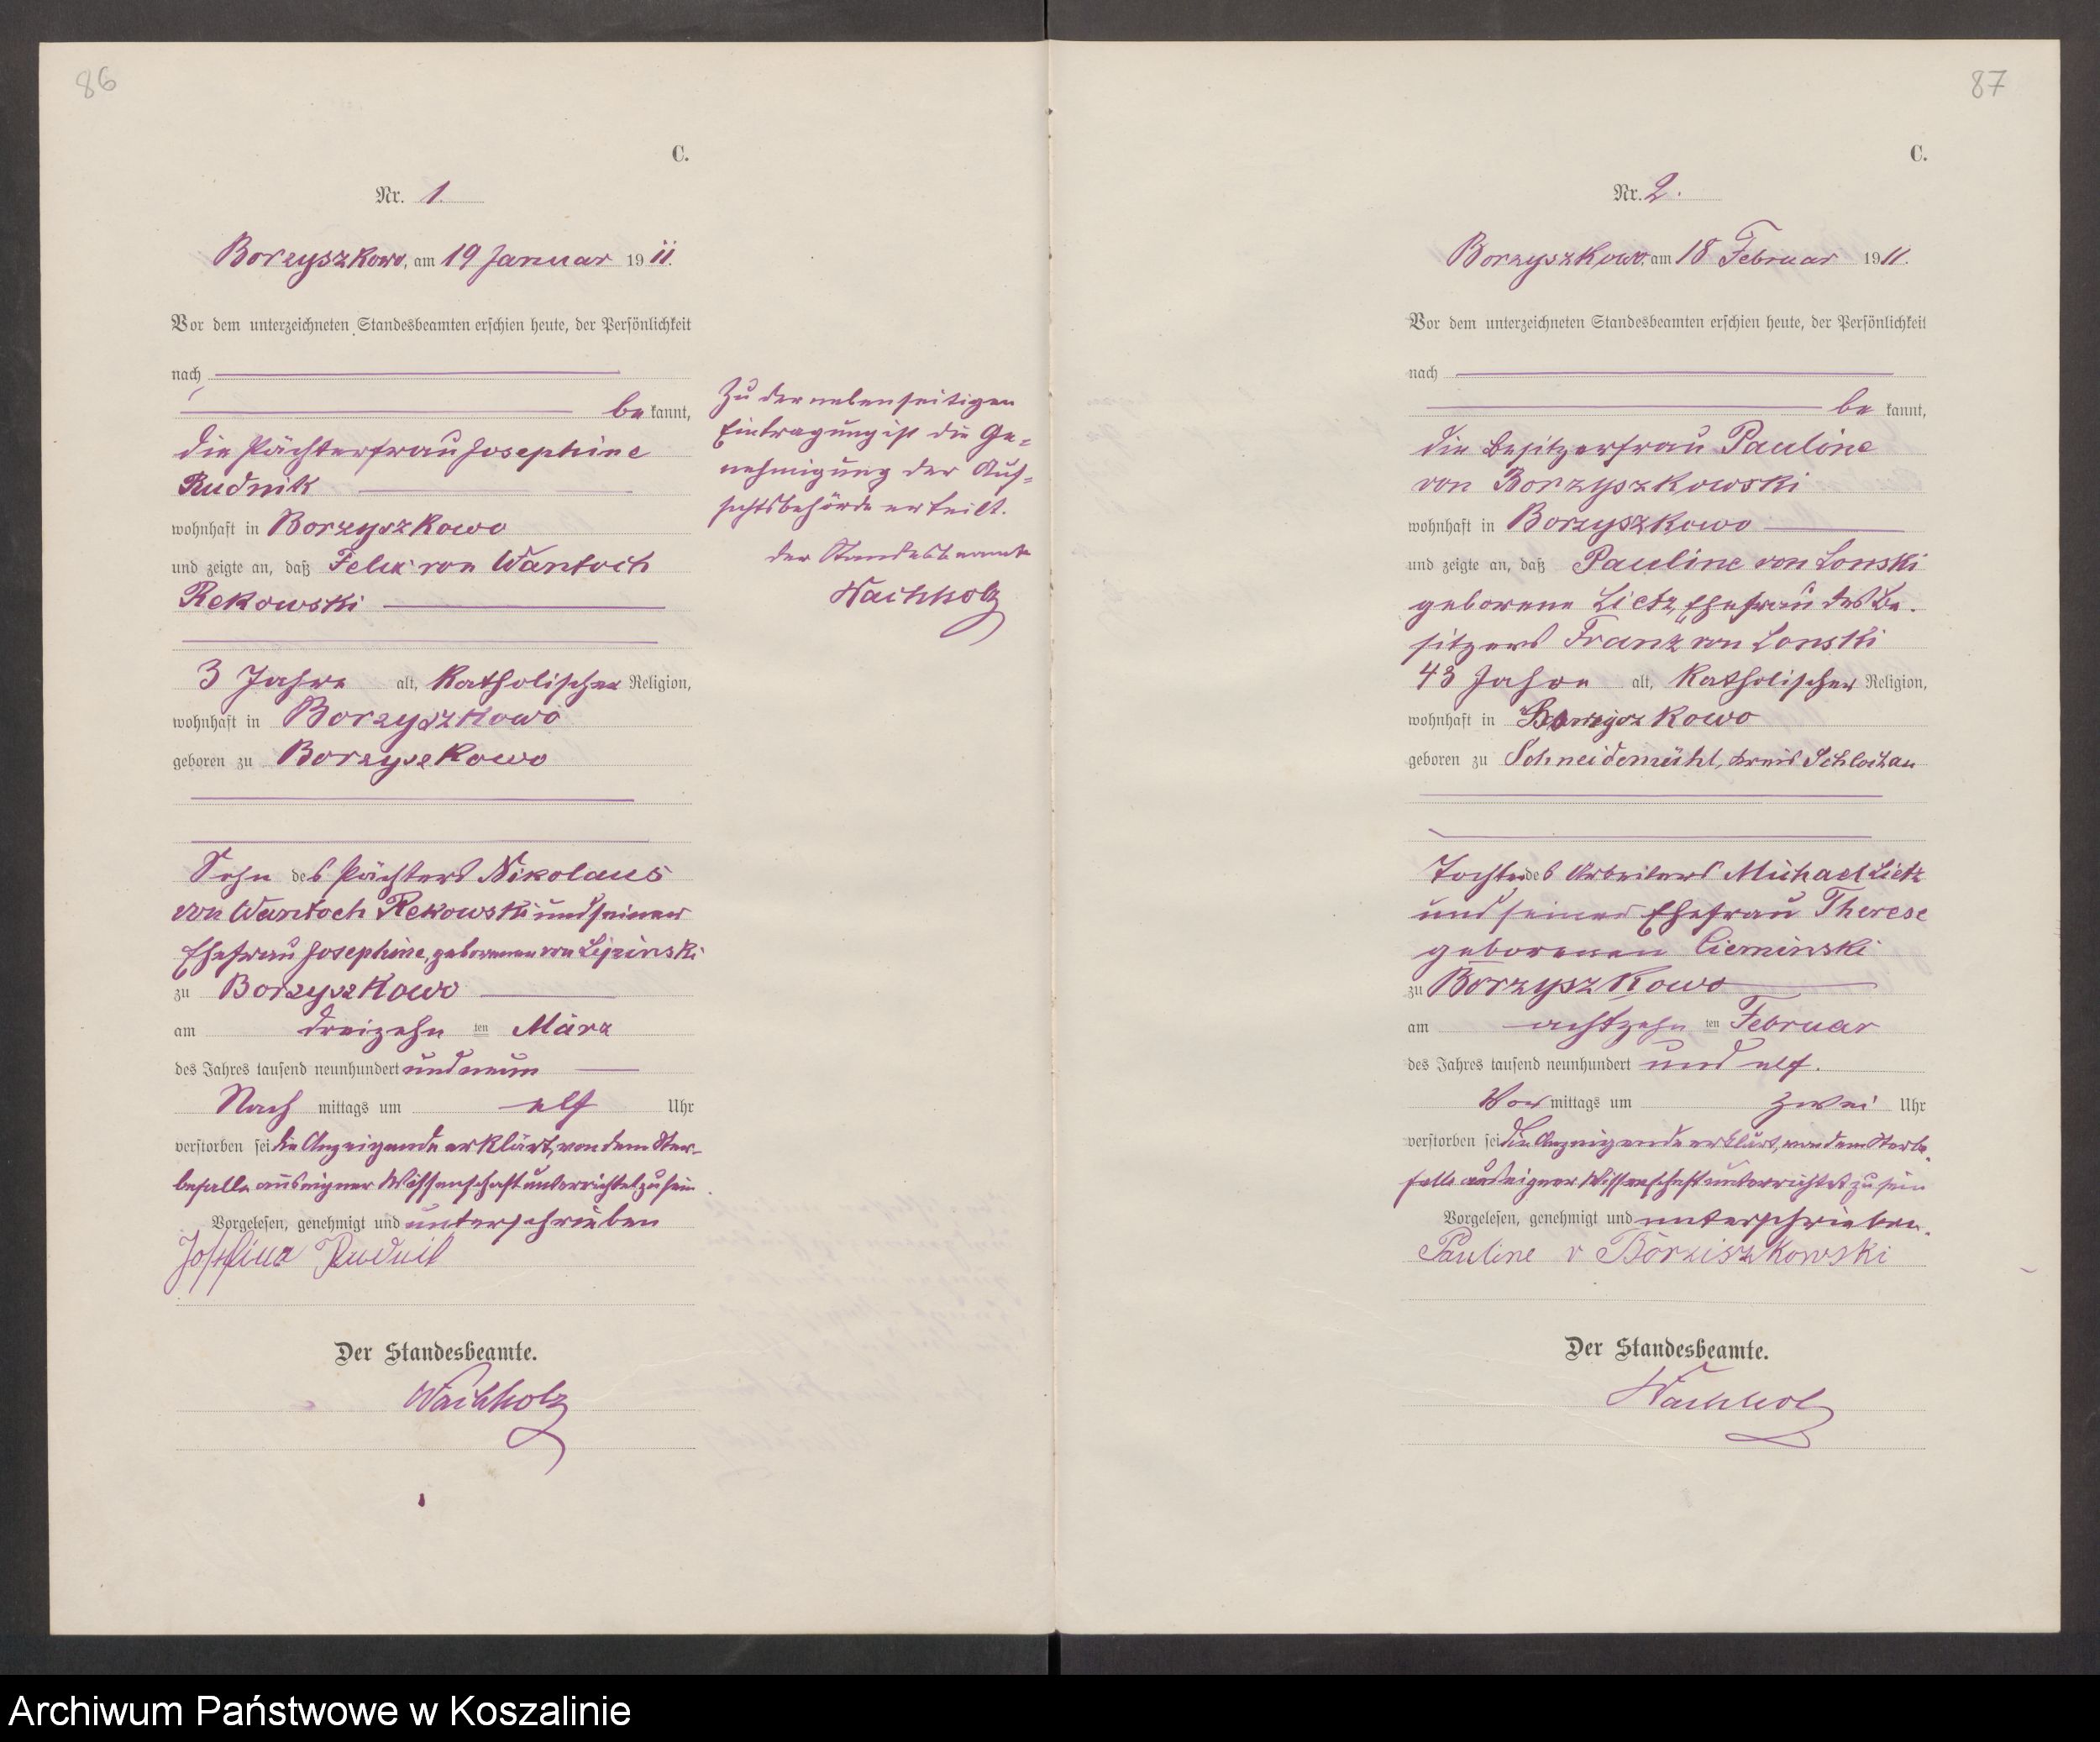 86
C.
Nr. 1.
Borzyszkowo, am 19 Januar 1911.
Vor dem unterzeichneten Standesbeamten erschien heute, der Persönlichkeit
nach
be kannt,
die Pächterfrau Josephine
Rudnik
wohnhaft in Borzyszkowo
und zeigte an, daß Felix von Wantoch
Rekowski
3 Jahre alt, Katholischer Religion,
wohnhaft in Borzyszkowo
geboren zu Borzyszkowo
Sohn des Pächters Nikolaus
von Wantoch Rekowski und seiner
Ehefrau Josephine, geborenen von Lipinski
zu Borzyszkowo
am dreizehn ten März
des Jahres tausend neunhundert und neun
Nach mittags um elf Uhr
verstorben sei die Anzeigende erklärt, von dem Ster-
befalle aus eigner Wissenschaft unterrichtet zu sein
Vorgelesen, genehmigt und unterschrieben
Josefina Rudnik
Der Standesbeamte.
Wachholz
Zu der nebenseitigen
Eintragung ist die Ge=
nehmigung der Auf=
sichtsbehörde erteilt.
der Standesbeamte
Wachholz
87
C.
Nr. 2.
Borzyszkowo. am 18 Februar 1911.
Vor dem unterzeichneten Standesbeamten erschien heute, der Persönlichkeit
nach
be kannt,
die Besitzerfrau Pauline
von Borzyszkowski
wohnhaft in Borzyszkowo
und zeigte an, daß Pauline von Lonski
geborene Lietz, Ehefrau des Be.
sitzers Franz von Lonski
43 Jahre alt, Katholischer Religion,
wohnhaft in Borzyszkowo
geboren zu Schneidemühl, Kreis Schlochau
Tochter des Arbeiters Michael Lietz
und seiner Ehefrau Therese
geborenen Cieminski
zu Borzyszkowo
am achtzehn ten Februar
des Jahres tausend neunhundert und elf.
Vor mittags um zwei Uhr
verstorben sei die Anzeigende erklärt, von dem Sterbe
falle aus eigner Wissenschaft unterrichtet zu sein
Vorgelesen, genehmigt und unterschrieben.
Pauline v Borziszkowski
Der Standesbeamte.
Wachholz
Archiwum Państwowe w Koszalinie